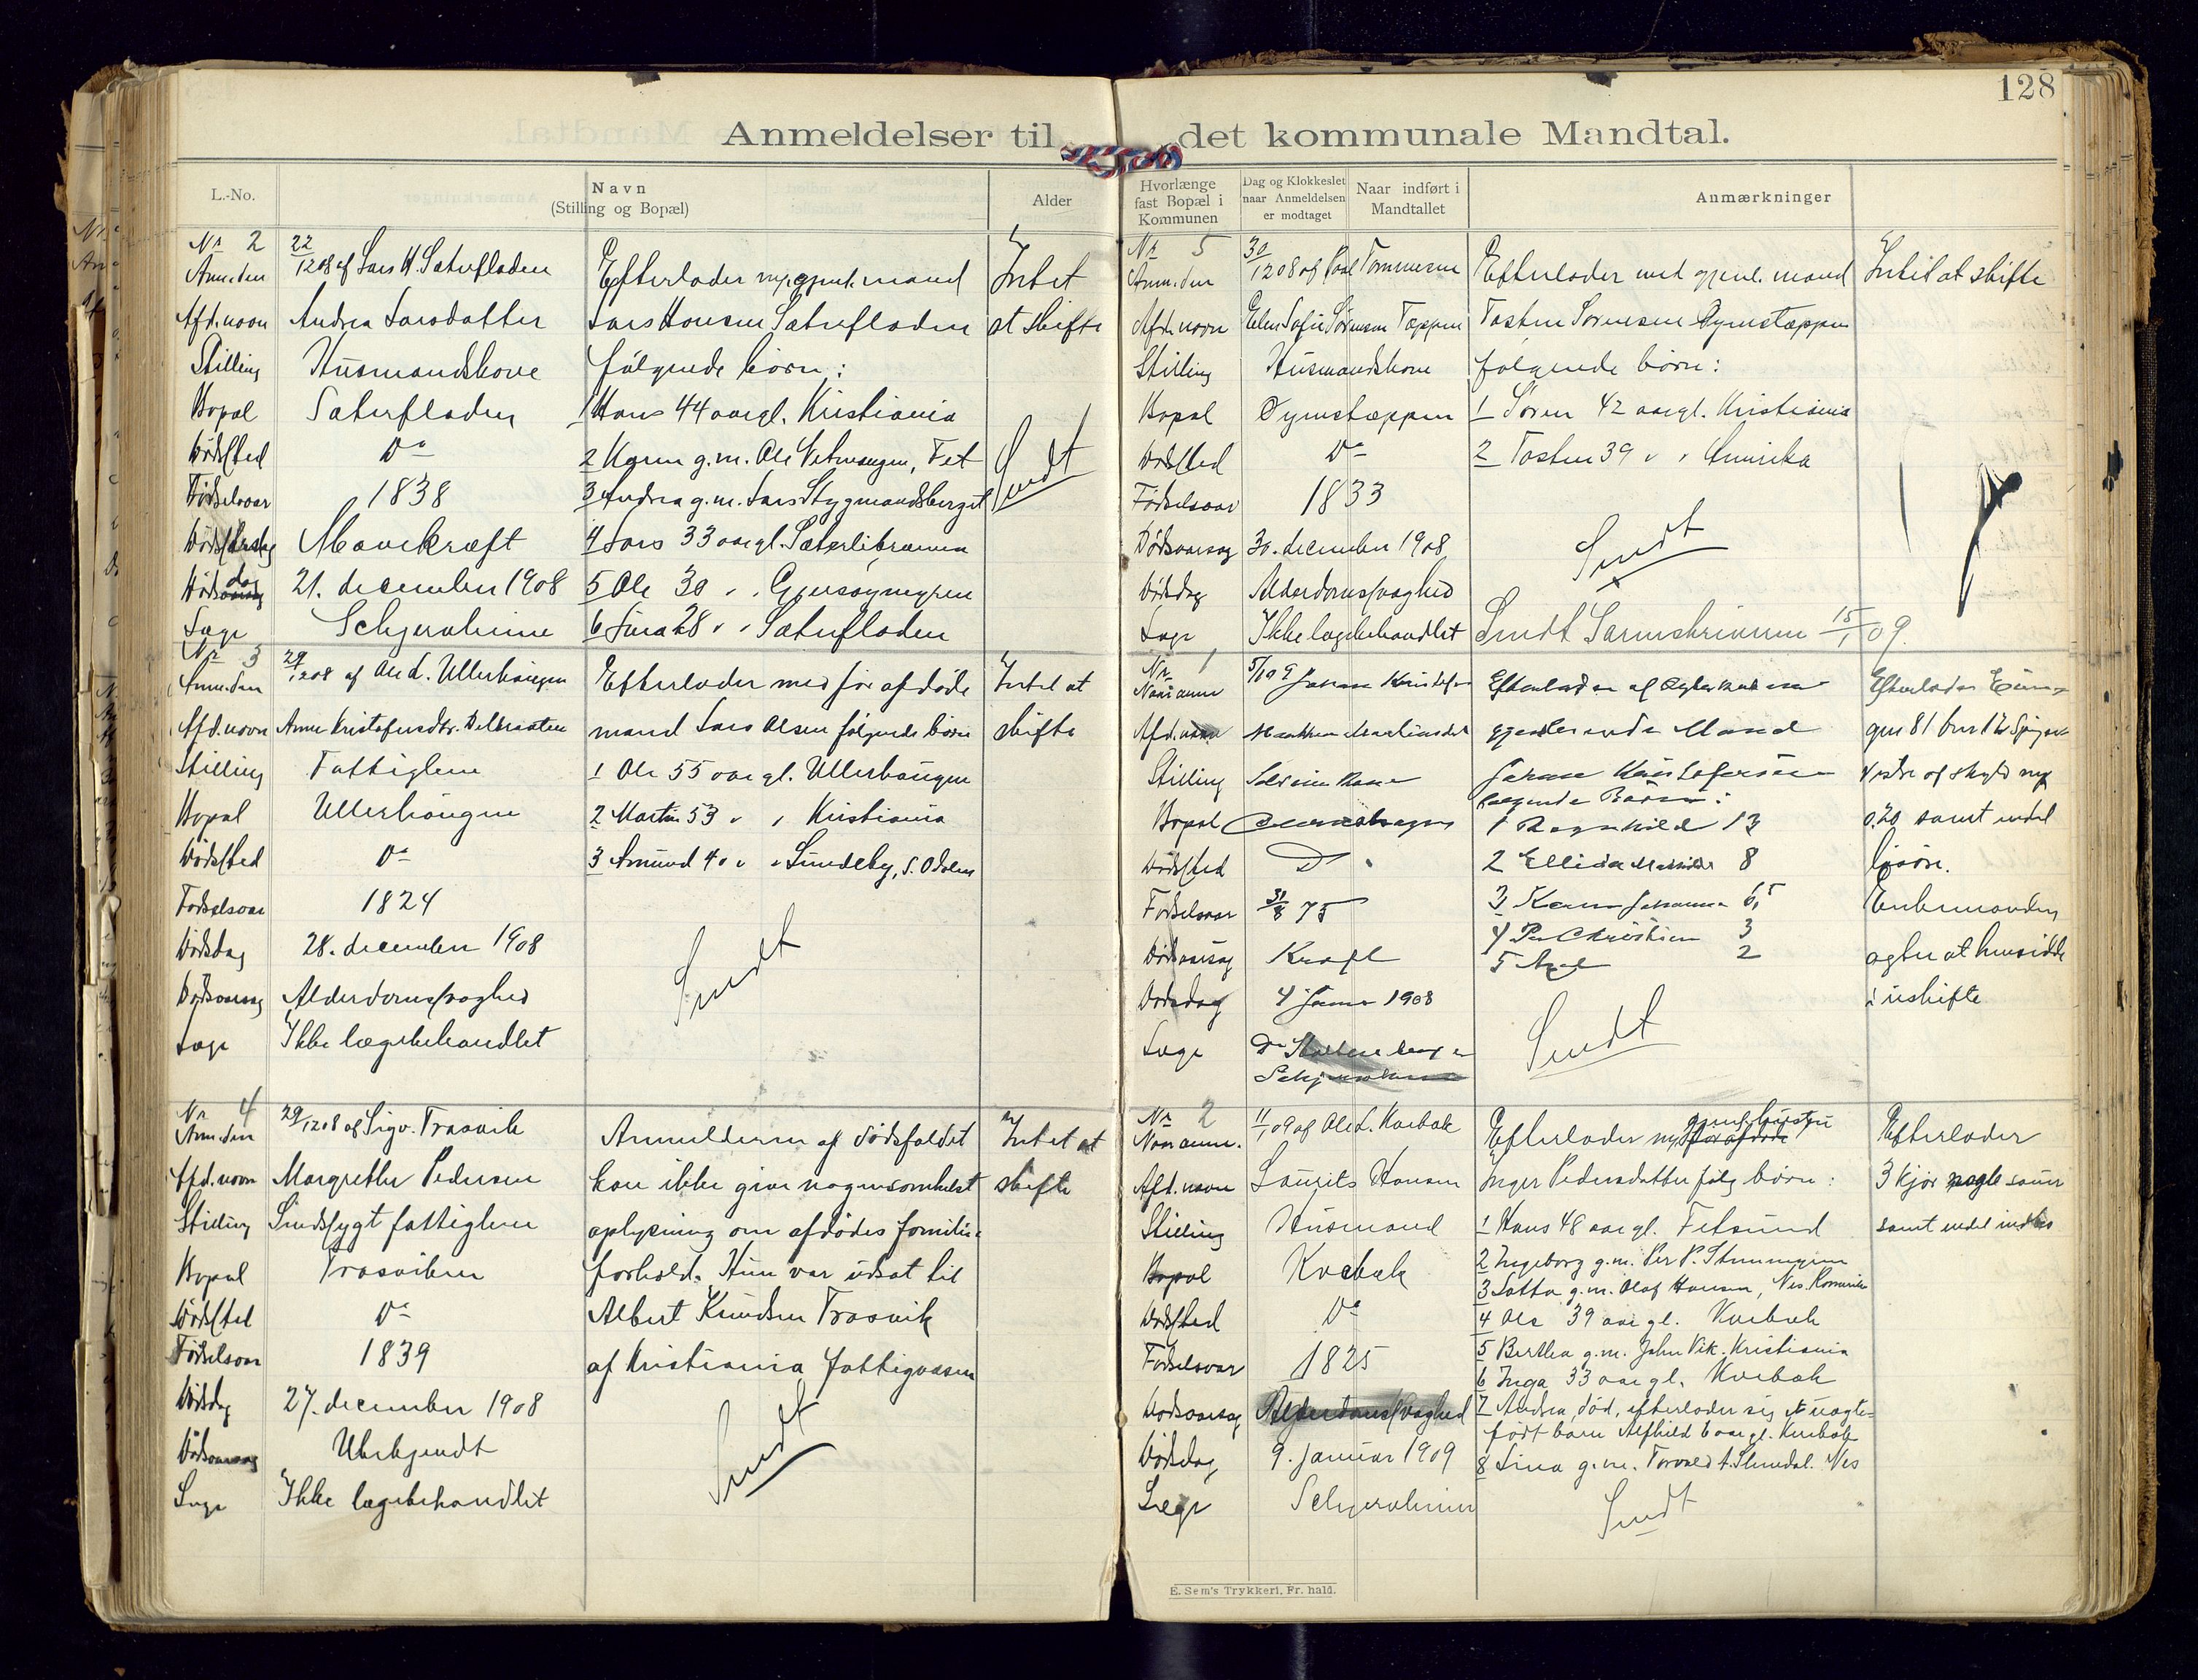 128
Anmeldelser til det kommunale Mandtal.
L.-No.
Navn
(Stilling og Bopæl)
Alder
Hvorlænge fast Bopæl i Kommunen
Dag og Klokkeslet naar Anmeldelsen er modtaget
Naar indført i Mandtallet
Anmærkninger
Nr 2
Anm. den 22/12 08 af Lars H. Sæterfladen
Afd. navn Andrea Larsdatter
Stilling Husmandskone
Bopæl Sæterfladen
Dødssted Do
Fødselsaar 1838
Dødsårsag Mavekræft
Dødsdag 21. december 1908
Læge Schjervheim
Efterlader gjenl. mand
Lars Hansen Sæterfladen
følgende børn:
1 Hans 44 aar gl. Kristiania
2 Karen g.m. Ole , Fet
3 Andrea g.m. Lars Stygmandsberget
4 Lars 33 aar gl.
5 Ole 30 " "
6 Lina 28 " " Sæterfladen
Intet
at skifte
Sendt
Nr 3
Anm. den 29/12 08 af Ole L. Ullerhaugen
Afd. navn Anne Kristofersdtr.
Stilling Fattiglem
Bopæl Ullerhaugen
Dødssted Do
Fødselsaar 1824
Dødsdag 28. december 1908
Dødsaarsag Alderdomssvaghed
Læge Ikke lægebehandlet
Efterlader med før afdøde
mand Lars Olsen følgende børn
1 Ole 55 aar gl. Ullerhaugen
2 Martin 53 " " Kristiania
3 Amund 40 " " Lundeby, S. Odalen
Intet at
skifte
Sendt
Nr 4
Anm. den 29/12 08 af Sigv. Trosvik
Afd. navn Margrethe Pedersen
Stilling Sindssygt fattiglem
Bopæl Trosviken
Dødssted Do
Fødselsaar 1839
Dødsdag 27. december 1908
Dødsaarsag Ubekjendt
Læge Ikke lægebehandlet
Anmelderen af dødsfaldet
kan ikke give nogensomhelst
oplysning om afdødes familie-
forhold. Hun var udsat til
Albert Knudsen Trosvik
af Kristiania fattigvæsen
Intet at
skifte
Sendt
Nr 5
Anm. den 30/12 08 af Paul Tommesen
Afd. navn Elen Sofie Sørensen Tæppen
Stilling Husmandskone
Bopæl
Dødssted Do
Fødselsaar 1833
Dødsaarsag 30. december 1908
Dødsdag Alderdomssvaghed
Læge Ikke lægebehandlet
Efterlader med gjenl. mand
Tosten Sørensen
følgende børn:
1 Søren 42 aar gl. Kristiania
2 Tosten 39 " " Amerika
Sendt
Sendt Sorenskriveren 15/1 09.
Intet at skifte
Nr 1
Naar anm. 5/1 09 Johan Kristofersen
Afd. navn
Stilling
Bopæl
Dødssted Do
Fødselsaar 31/8 75
Dødsaarsag Kræft
Dødsdag 4 Januar 1908
Læge Dr
Efterlader
gjenlevende Mand
Johan Kristofersen
følgende Børn:
1 Ragnhild 13
2 Ellida Mathilde 8
3 Karen Johanna 6,5
4 Per Christian 3
5 Axel 2
Sendt
Efterlader
gnr 81 bnr 12
vestre af skyld mrk
0,20 samt endel
løsøre.
Enkemanden
agter at hensidde
i uskifte
Nr 2
Naar anm. 11/1 09 af Ole L. Kvebæk
Afd. navn Laurits Hansen
Stilling Husmand
Bopæl Kvebæk
Dødssted Do
Fødselsaar 1825
Dødsaarsag Alderdomssvaghed
Dødsdag 9. januar 1909
Læge Schjervheim
Efterlader gjenl. hustru
Inger Pedersdatter følg børn:
1 Hans 48 aar gl. Fetsund
2 Ingeborg g.m. Per P.
3 Lotta g.m. Olaf Hansen, Nes Romerike
4 Ole 39 aar gl. Kvebæk
5 Berthea g.m. John Vik. Kristiania
6 Inga 33 aar gl. Kvebæk
7 Andrea, død, efterlader sig et uægte-
født barn Alfhild 6 aar gl. Kvebæk
8 Lina g.m. Nes
Sendt
Efterlader
3 kjør nogle sauer
samt endel indbo
E. Sem's Trykkeri, Fr. hald.